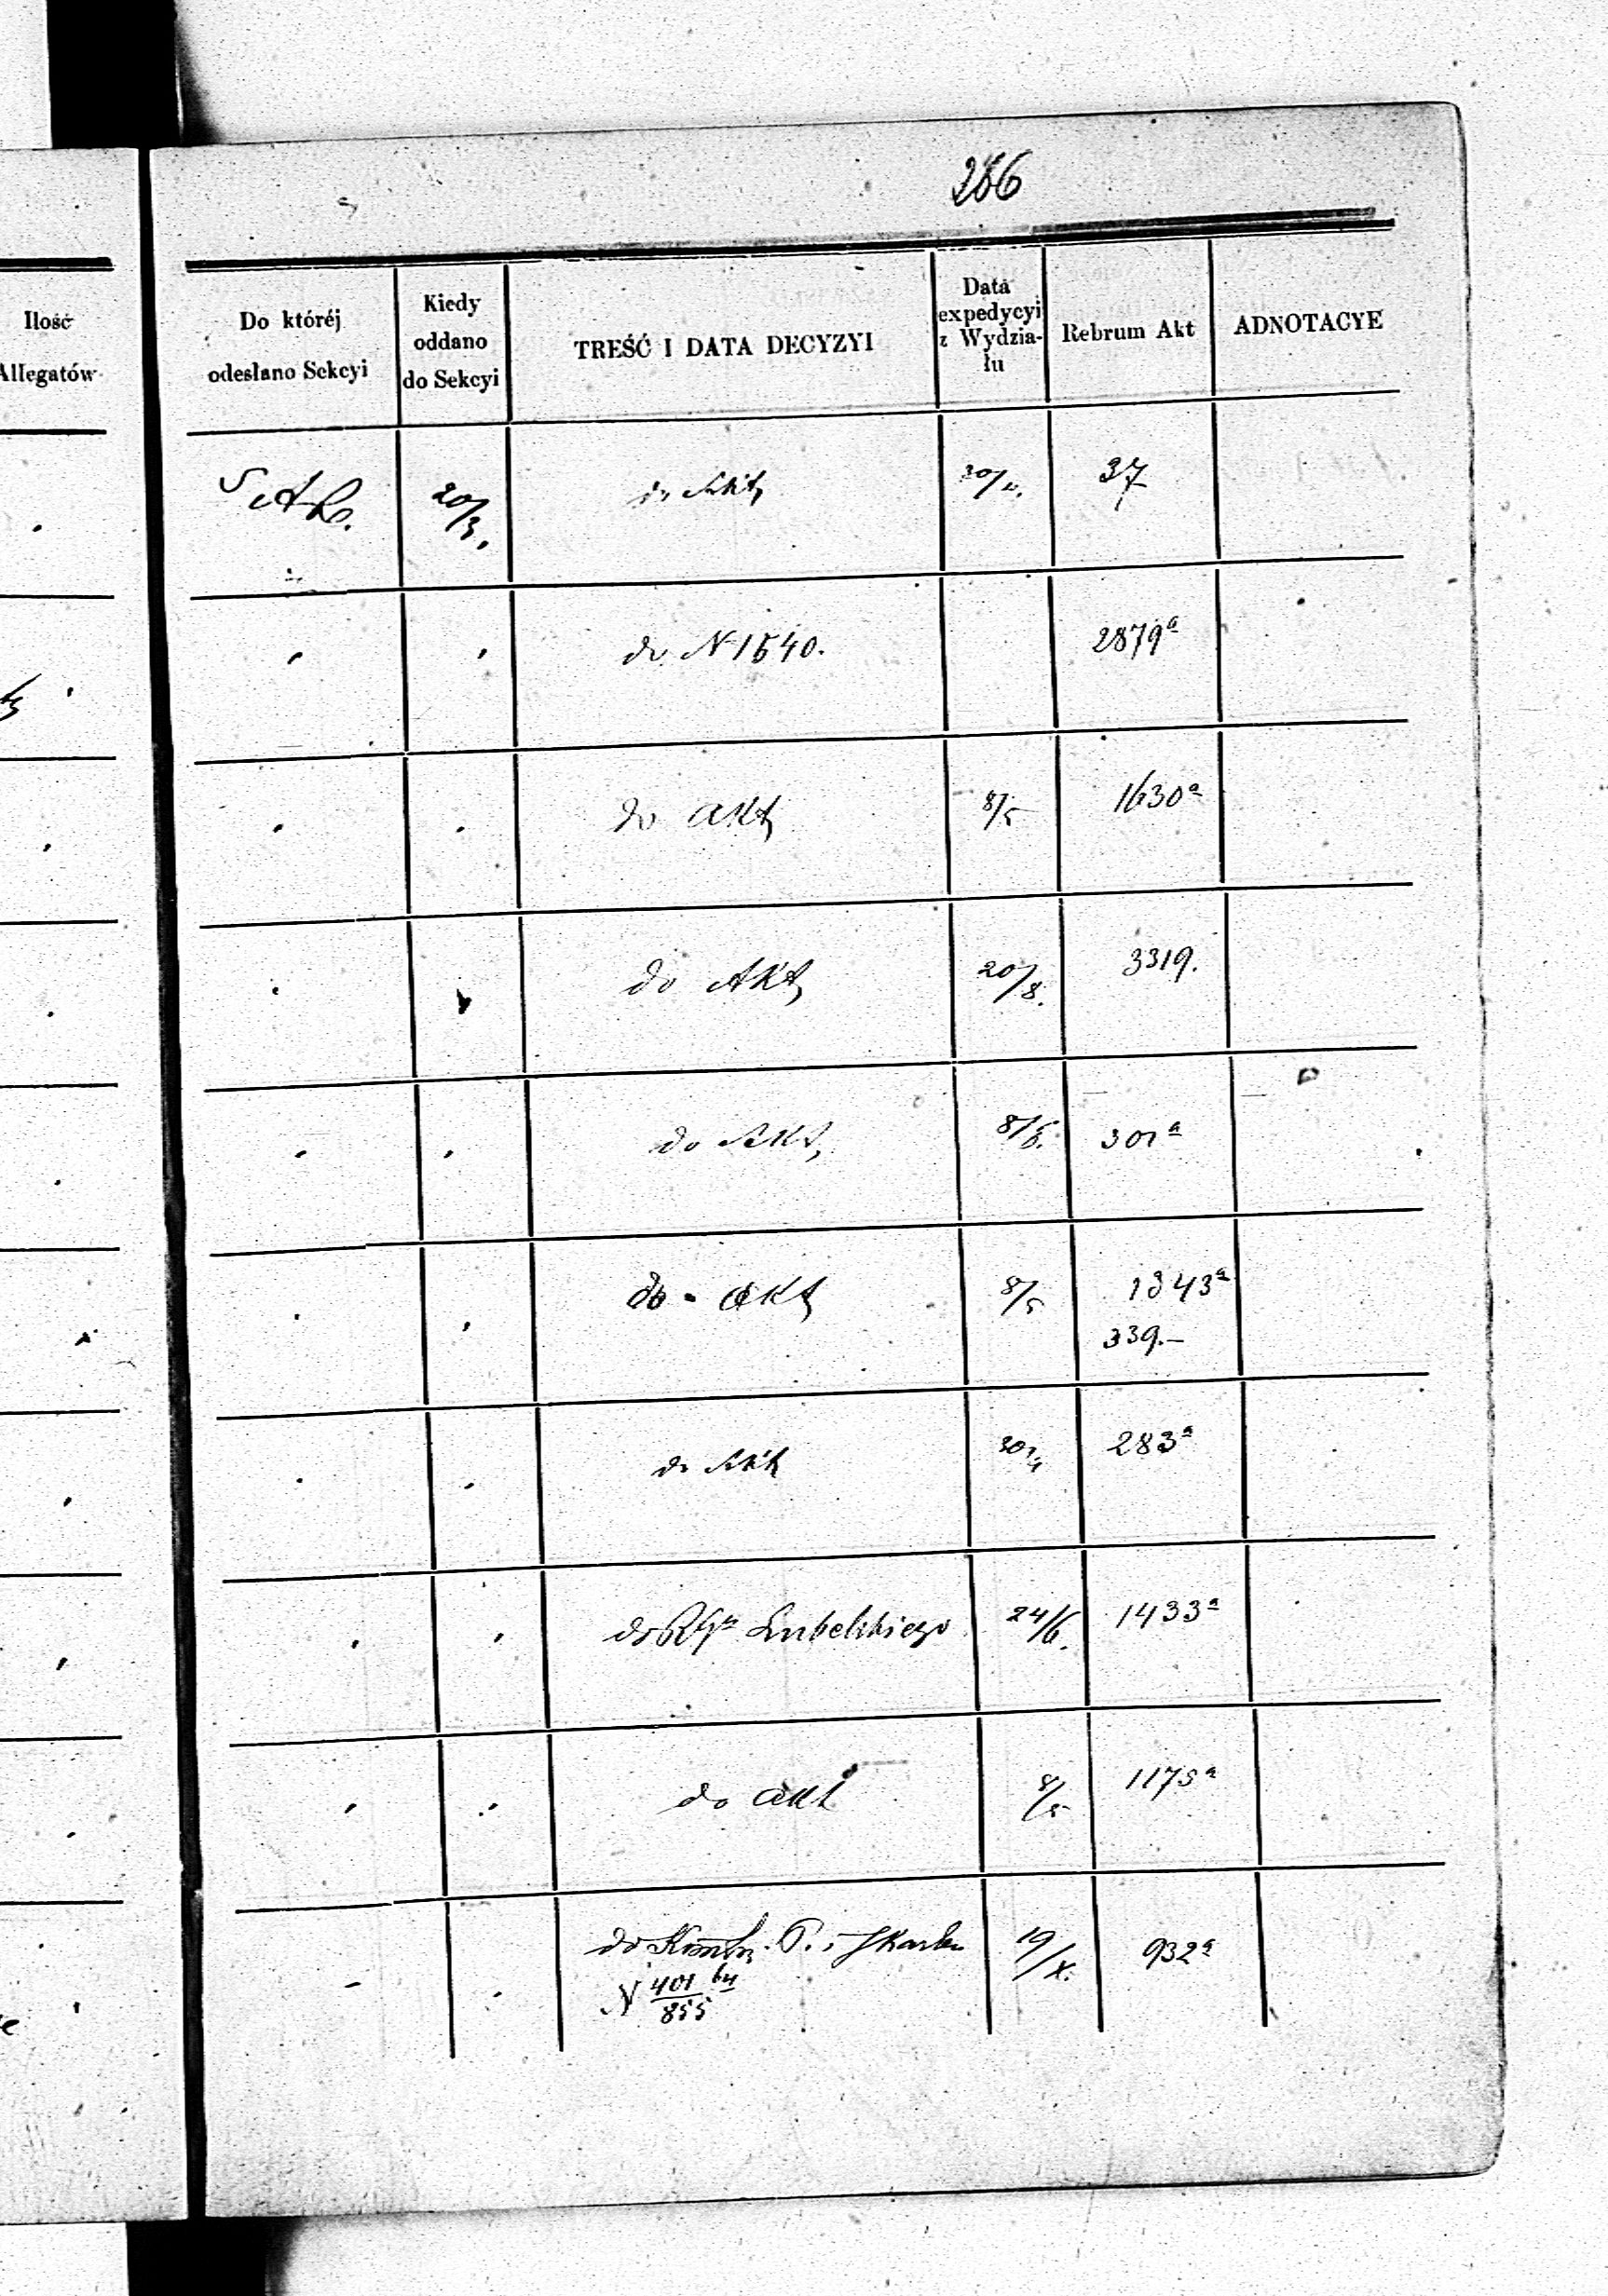 286
Ilość
Allegatów
Do któréj
odesłano Sekcyi
Kiedy
oddano
do Sekcyi
TREŚĆ I DATA DECYZYI
Data
expedycyi
z Wydzia-
łu
Rebrum Akt
ADNOTACYE
20/3. do Akt 37
do N 1540. 2879a
do Akt 8/5 1630a
do Akt 20/8. 3319.
do Akt 8/5. 301a
do Akt 8/5 1843a
339.—
do Akt 283a
do Lubelskiego 24/6. 1433a
do akt 8/5 1175a
do P. i Skarbu 19/X. 932a
N 401/855